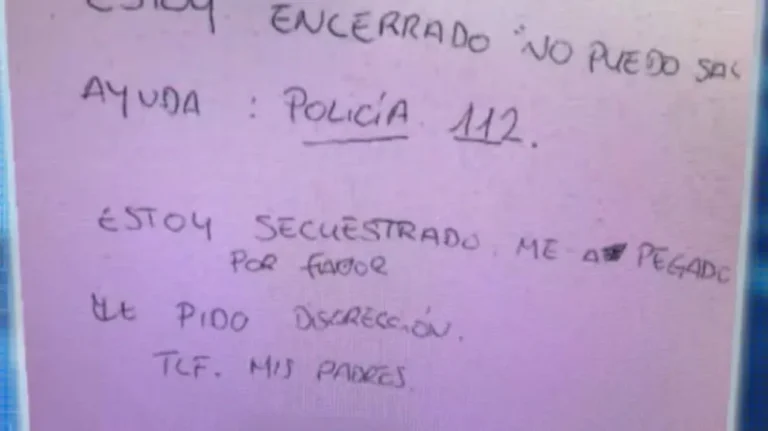 ESTOY ENCERRADO NO PUEDO SAL
AYUDA : POLICÍA 112.
ESTOY SECUESTRADO. ME A PEGADO
POR FAVOR
LE PIDO DISCRECCIÓN.
TLF. MIS PADRES.